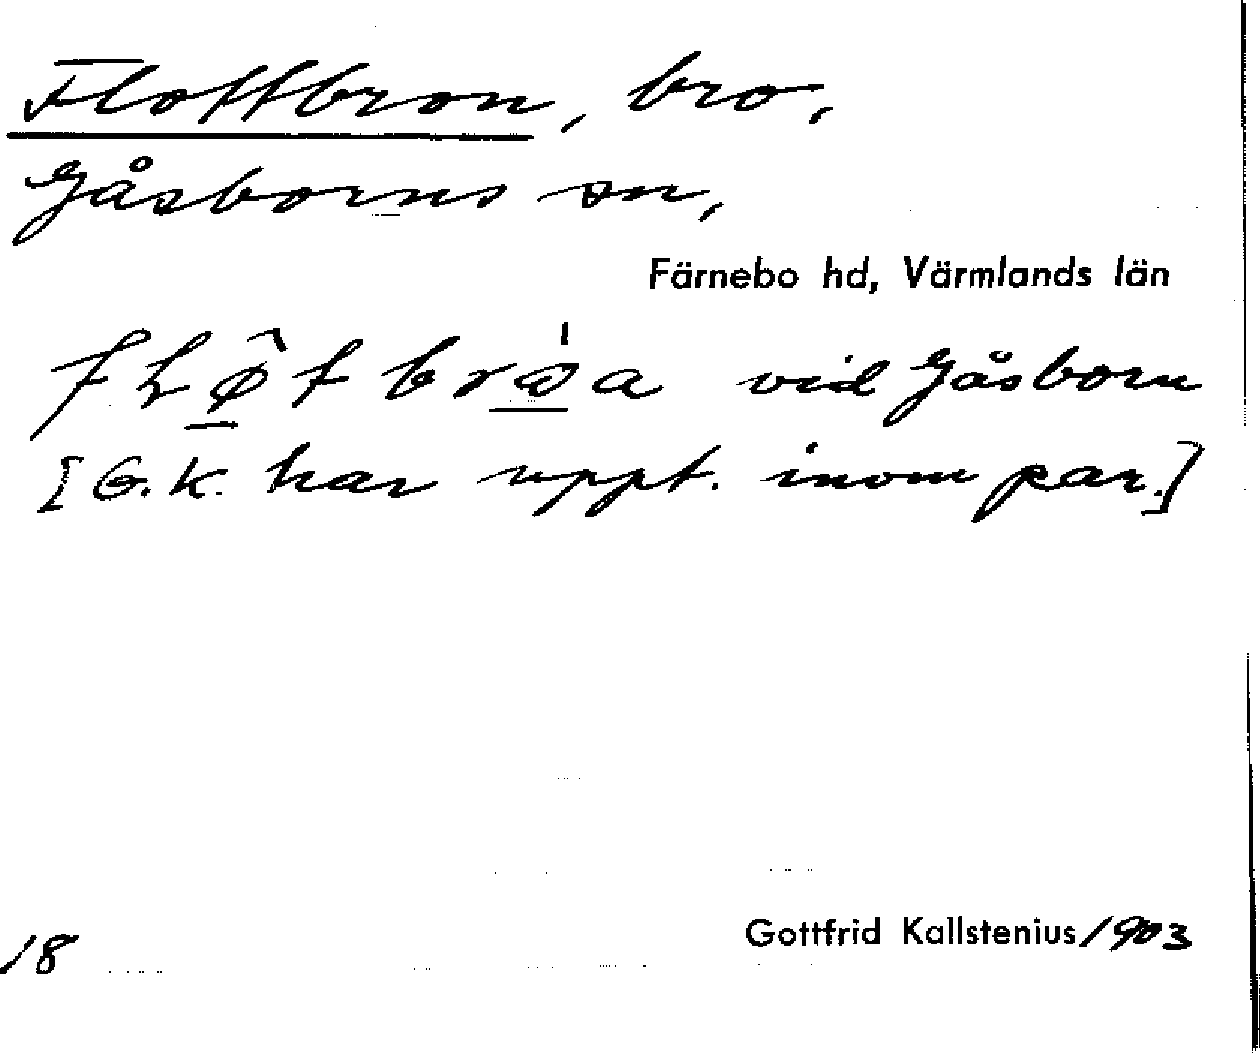 Flottbron, bro,
Gåsborns sn,
Färnebo hd, Värmlands län
vid Gåsborn
[G.K. har uppt. inom par.]
18
Gottfrid Kallstenius 1903